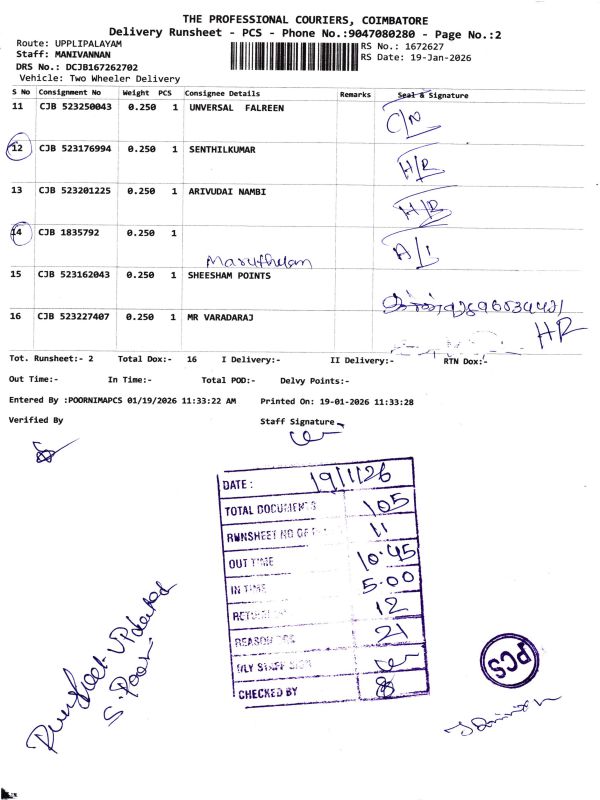 THE PROFESSIONAL COURIERS, COIMBATORE
Delivery Runsheet - PCS - Phone No.:9047080280 - Page No.:2
Route: UPPLIPALAYAM RS No.: 1672627
Staff: MANIVANNAN RS Date: 19-Jan-2026
DRS No.: DCJB167262702
Vehicle: Two Wheeler Delivery
S No Consignment No Weight PCS Consignee Details Remarks Seal & Signature
11 CJB 523250043 0.250 1 UNVERSAL FALREEN C/N
12 CJB 523176994 0.250 1 SENTHILKUMAR H/R
13 CJB 523201225 0.250 1 ARIVUDAI NAMBI H/R
14 CJB 1835792 0.250 1 A/1
15 CJB 523162043 0.250 1 SHEESHAM POINTS
16 CJB 523227407 0.250 1 MR VARADARAJ HR
Tot. Runsheet:- 2 Total Dox:- 16 I Delivery:- II Delivery:- RTN Dox:-
Out Time:- In Time:- Total POD:- Delvy Points:-
Entered By :POORNIMAPCS 01/19/2026 11:33:22 AM Printed On: 19-01-2026 11:33:28
Verified By Staff Signature
DATE : 19/1/26
TOTAL DOCUMENTS 105
RUNSHEET NO OF 11
OUT TIME 10.45
IN TIME 5.00
RETURN 12
REASON 21
DLY STAFF SIGN
CHECKED BY
Runsheet Updated
S. Poor
PCS